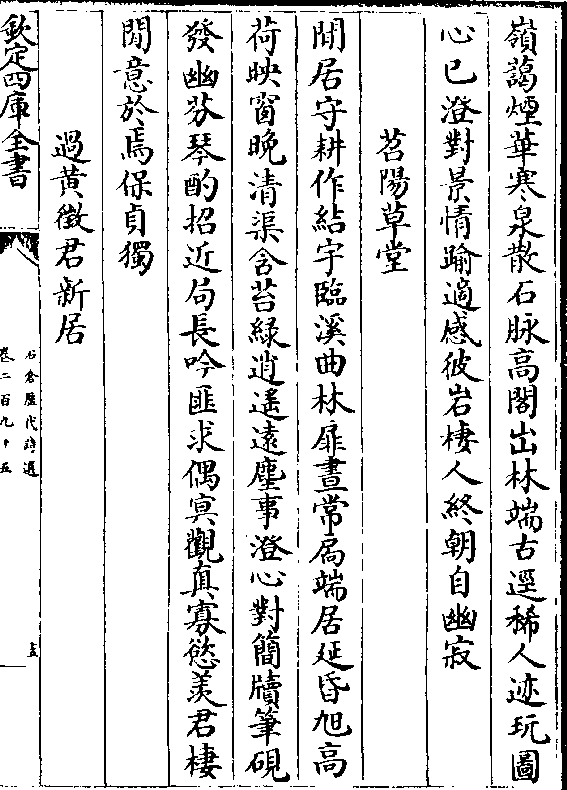 嶺藹煙華寒泉散石脉高閣出林端古逕稀人迹玩圖
心已澄對景情踰適感彼岩棲人終朝自幽寂
苕陽草堂
閒居守耕作結宇臨溪曲林扉晝常扃端居延昏旭高
荷映窗晚清渠含苔綠逍遙遠塵事澄心對簡牘筆硯
發幽芬琴酌招近局長吟匪求偶冥觀真寡慾羡君棲
閒意於焉保貞獨
過黃徵君新居
欽定四庫全書
石倉歷代詩選
卷二百九十五